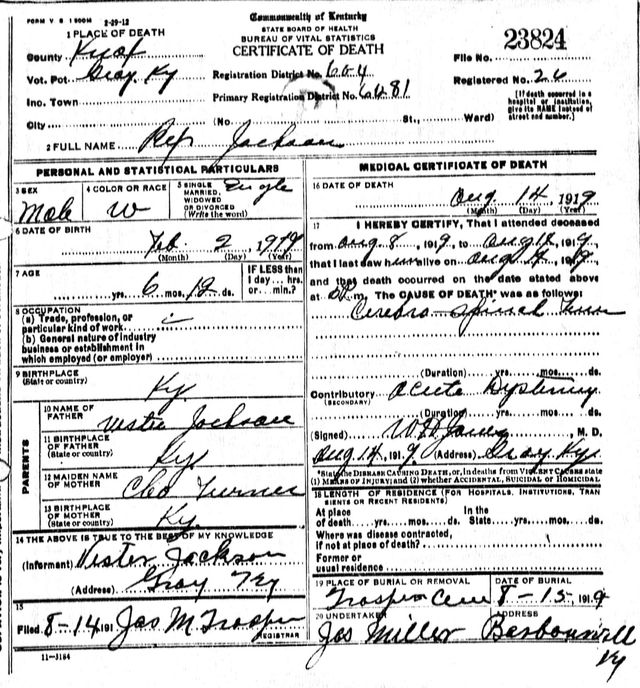 FORM V S 1 500M 2-29-12
Commonwealth of Kentucky
STATE BOARD OF HEALTH
BUREAU OF VITAL STATISTICS
CERTIFICATE OF DEATH
1 PLACE OF DEATH
County Knox
Vot. Pct Gray, Ky
Inc. Town
City (No. St., Ward)
Registration District No. 664
Primary Registration District No. 6481
File No. 23824
Registered No. 26
[If death occurred in a
hospital or institution,
give its NAME instead of
street and number.]
2 FULL NAME Jackson
PERSONAL AND STATISTICAL PARTICULARS
3 SEX
Male
4 COLOR OR RACE
W
5 SINGLE
MARRIED,
WIDOWED
OR DIVORCED
(Write the word)
Single
6 DATE OF BIRTH
Feb. 2, 1919
(Month) (Day) (Year)
7 AGE
yrs. 6 mos. 12 ds.
IF LESS than
1 day... hrs.
or... min.?
8 OCCUPATION
(a) Trade, profession, or
particular kind of work
(b) General nature of industry
business or establishment in
which employed (or employer)
9 BIRTHPLACE
(State or country)
Ky.
PARENTS
10 NAME OF
FATHER
Vester Jackson
11 BIRTHPLACE
OF FATHER
(State or country)
Ky
12 MAIDEN NAME
OF MOTHER
Cleo Turner
13 BIRTHPLACE
OF MOTHER
(State or country)
Ky.
14 THE ABOVE IS TRUE TO THE BEST OF MY KNOWLEDGE
(Informant) Vester Jackson
(Address) Gray Ky
15
Filed 8-14 191 Jas M Trosper
REGISTRAR
11-3184
MEDICAL CERTIFICATE OF DEATH
16 DATE OF DEATH
Aug. 14, 1919
(Month) (Day) (Year)
17 I HEREBY CERTIFY, That I attended deceased
from Aug 8, 1919, to Aug 14, 1919,
that I last saw him alive on Aug 14, 1919
and that death occurred on the date stated above
at m. The CAUSE OF DEATH* was as follows:
Cerebro-Spinal
(Duration) yrs. mos. ds.
Contributory Acute
(SECONDARY)
(Duration) yrs. mos. ds.
(Signed) , M. D.
Aug 14, 1919 (Address) Gray Ky.
*State the DISEASE CAUSING DEATH, or, in deaths from VIOLENT CAUSES state
(1) MEANS OF INJURY; and (2) whether ACCIDENTAL, SUICIDAL OR HOMICIDAL
18 LENGTH OF RESIDENCE (FOR HOSPITALS, INSTITUTIONS, TRAN
SIENTS OR RECENT RESIDENTS)
At place In the
of death yrs. mos. ds. State yrs. mos. ds.
Where was disease contracted,
if not at place of death?
Former or
usual residence
19 PLACE OF BURIAL OR REMOVAL
Trosper Cem
DATE OF BURIAL
8-15-1919
20 UNDERTAKER
Jas Miller
ADDRESS
Barbourville
Ky